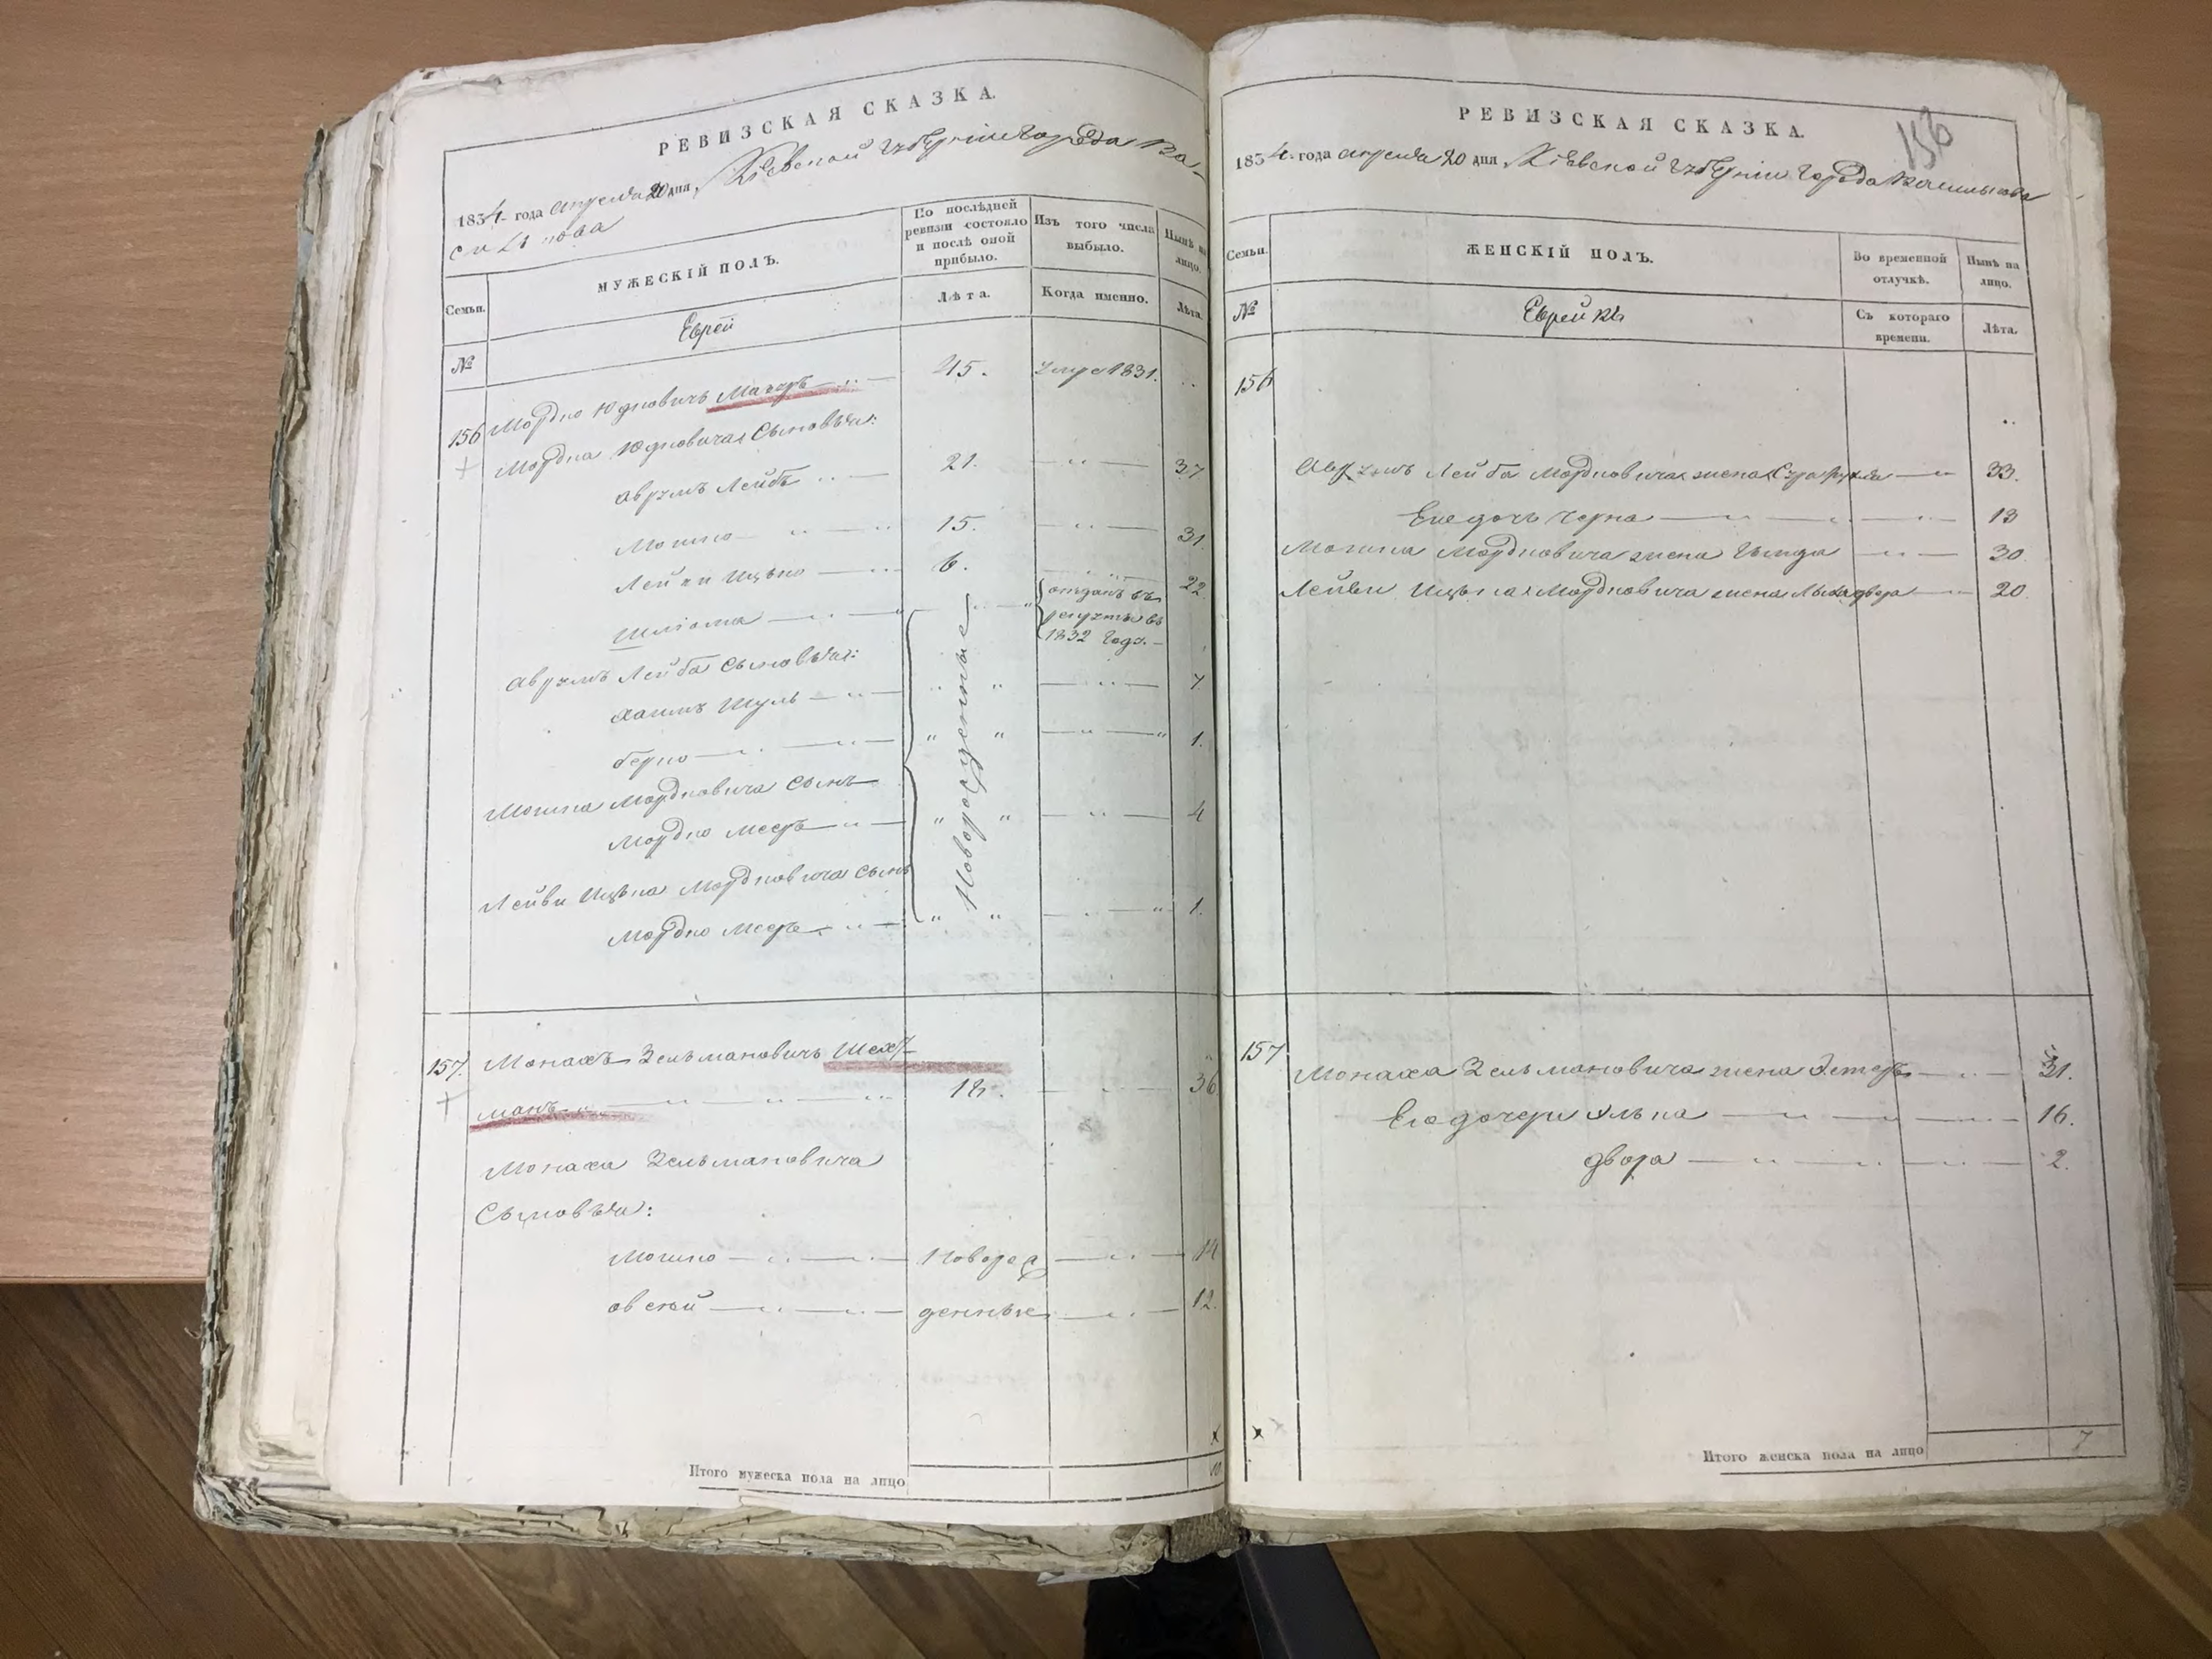 РЕВИЗСКАЯ СКАЗКА.
1834 года апреля 20 дня Кіевской губерніи города Ва-
силькова
Семьи.
МУЖЕСКІЙ ПОЛЪ.
По послѣдней ревизіи состояло и послѣ оной прибыло.
Изъ того числа выбыло.
Нынѣ на лицо.
№
Еврей
Лѣта.
Когда именно.
Лѣта.
156 Мордко Юдковичъ Мазуръ 45. умре 1831.
Мордка Юдковича Сыновья:
Аврумъ Лейба 21. 37
Мошко 15. 31.
Лейви Ицько 6. 22.
Шліома отданъ въ
рекруты въ
1832 году.
Аврумъ Лейба Сыновья:
Хаимъ Шуль 7
берко 1.
Новорожденные
Мошка Мордковича Сынъ
Мордко Мееръ 4
Лейви Ицька Мордковича Сынъ
Мордко Мееръ 1.
157. Монахъ Зельмановичъ Шехт-
манъ 18. 36.
Монаха Зельмановича
Сыновья:
Мошко Новорож 14
овсей денные 12.
Итого мужеска пола на лицо 10
РЕВИЗСКАЯ СКАЗКА.
156
1834 года апреля 20 дня Кіевской губерніи города Василькова
Семьи.
ЖЕНСКІЙ ПОЛЪ.
Во временной отлучкѣ.
Нынѣ на лицо.
№
Еврейки
Съ котораго времени.
Лѣта.
156
Аврумъ Лейба Мордковича жена Сура 33.
Его дочь Черна 13
Мошка Мордковича жена 30.
Лейви Ицька Мордковича жена 20
157 Монаха Зельмановича жена Эстеръ 31.
Его дочери 16.
двора 2.
Итого женска пола на лицо 7